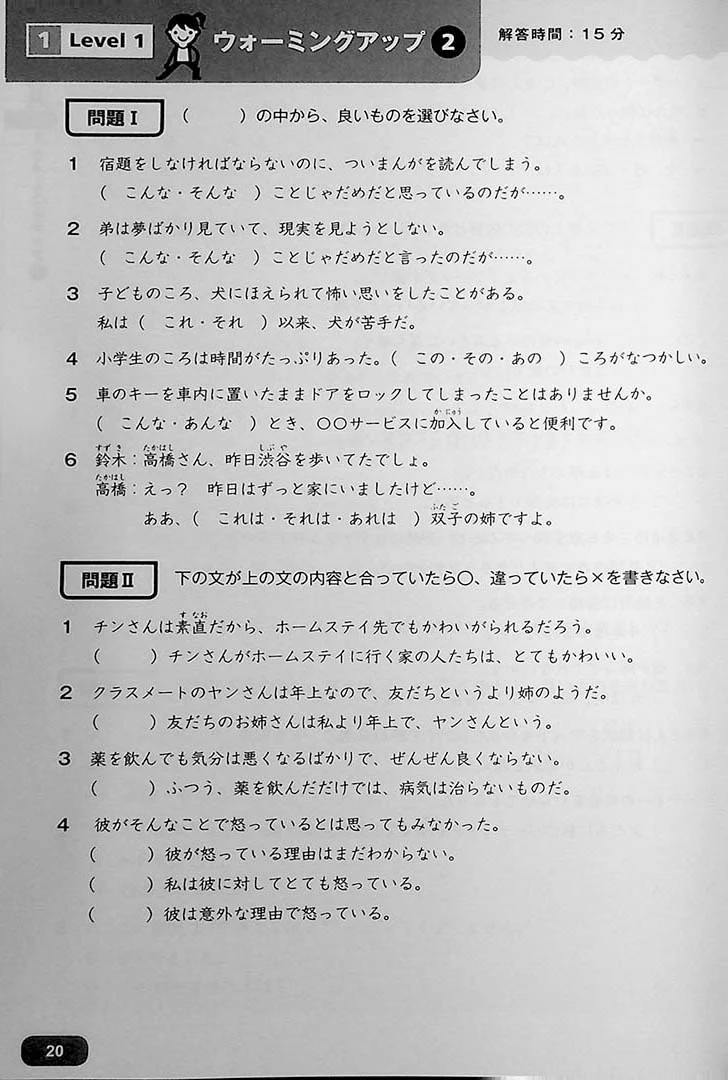 1 Level 1 ウォーミングアップ 2 解答時間：15分
問題Ⅰ （　　　）の中から、良いものを選びなさい。
1 宿題をしなければならないのに、ついまんがを読んでしまう。
（　こんな・そんな　）ことじゃだめだと思っているのだが……。
2 弟は夢ばかり見ていて、現実を見ようとしない。
（　こんな・そんな　）ことじゃだめだと言ったのだが……。
3 子どものころ、犬にほえられて怖い思いをしたことがある。
私は（　これ・それ　）以来、犬が苦手だ。
4 小学生のころは時間がたっぷりあった。（　この・その・あの　）ころがなつかしい。
5 車のキーを車内に置いたままドアをロックしてしまったことはありませんか。
か にゅう
（　こんな・あんな　）とき、○○サービスに加入していると便利です。
すず き たかはし しぶ や
6 鈴木：高橋さん、昨日渋谷を歩いてたでしょ。
たかはし
高橋：えっ？　昨日はずっと家にいましたけど……。
ふた ご
ああ、（　これは・それは・あれは　）双子の姉ですよ。
問題Ⅱ 下の文が上の文の内容と合っていたら○、違っていたら×を書きなさい。
す なお
1 チンさんは素直だから、ホームステイ先でもかわいがられるだろう。
（　　　）チンさんがホームステイに行く家の人たちは、とてもかわいい。
2 クラスメートのヤンさんは年上なので、友だちというより姉のようだ。
（　　　）友だちのお姉さんは私より年上で、ヤンさんという。
3 薬を飲んでも気分は悪くなるばかりで、ぜんぜん良くならない。
（　　　）ふつう、薬を飲んだだけでは、病気は治らないものだ。
4 彼がそんなことで怒っているとは思ってもみなかった。
（　　　）彼が怒っている理由はまだわからない。
（　　　）私は彼に対してとても怒っている。
（　　　）彼は意外な理由で怒っている。
20